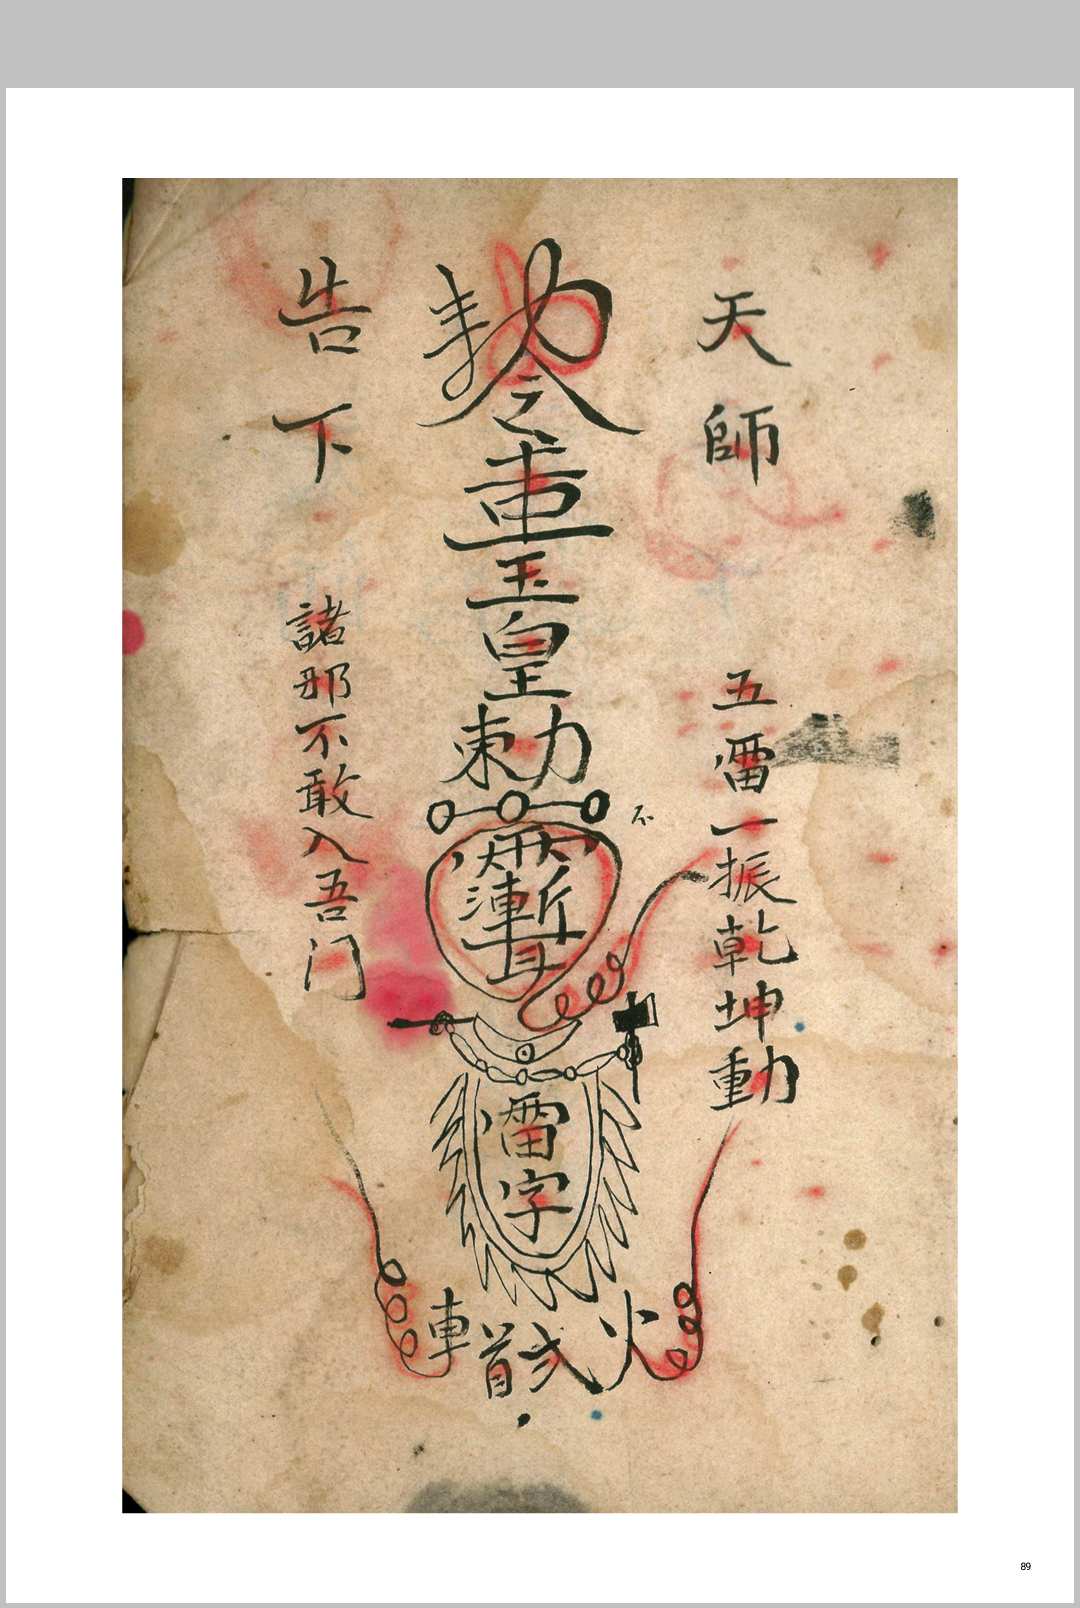 天師
五雷一振乾坤動
不
勅令
玉皇
勅
漸耳
雷字
火
車
告下
諸邪不敢入吾门
89